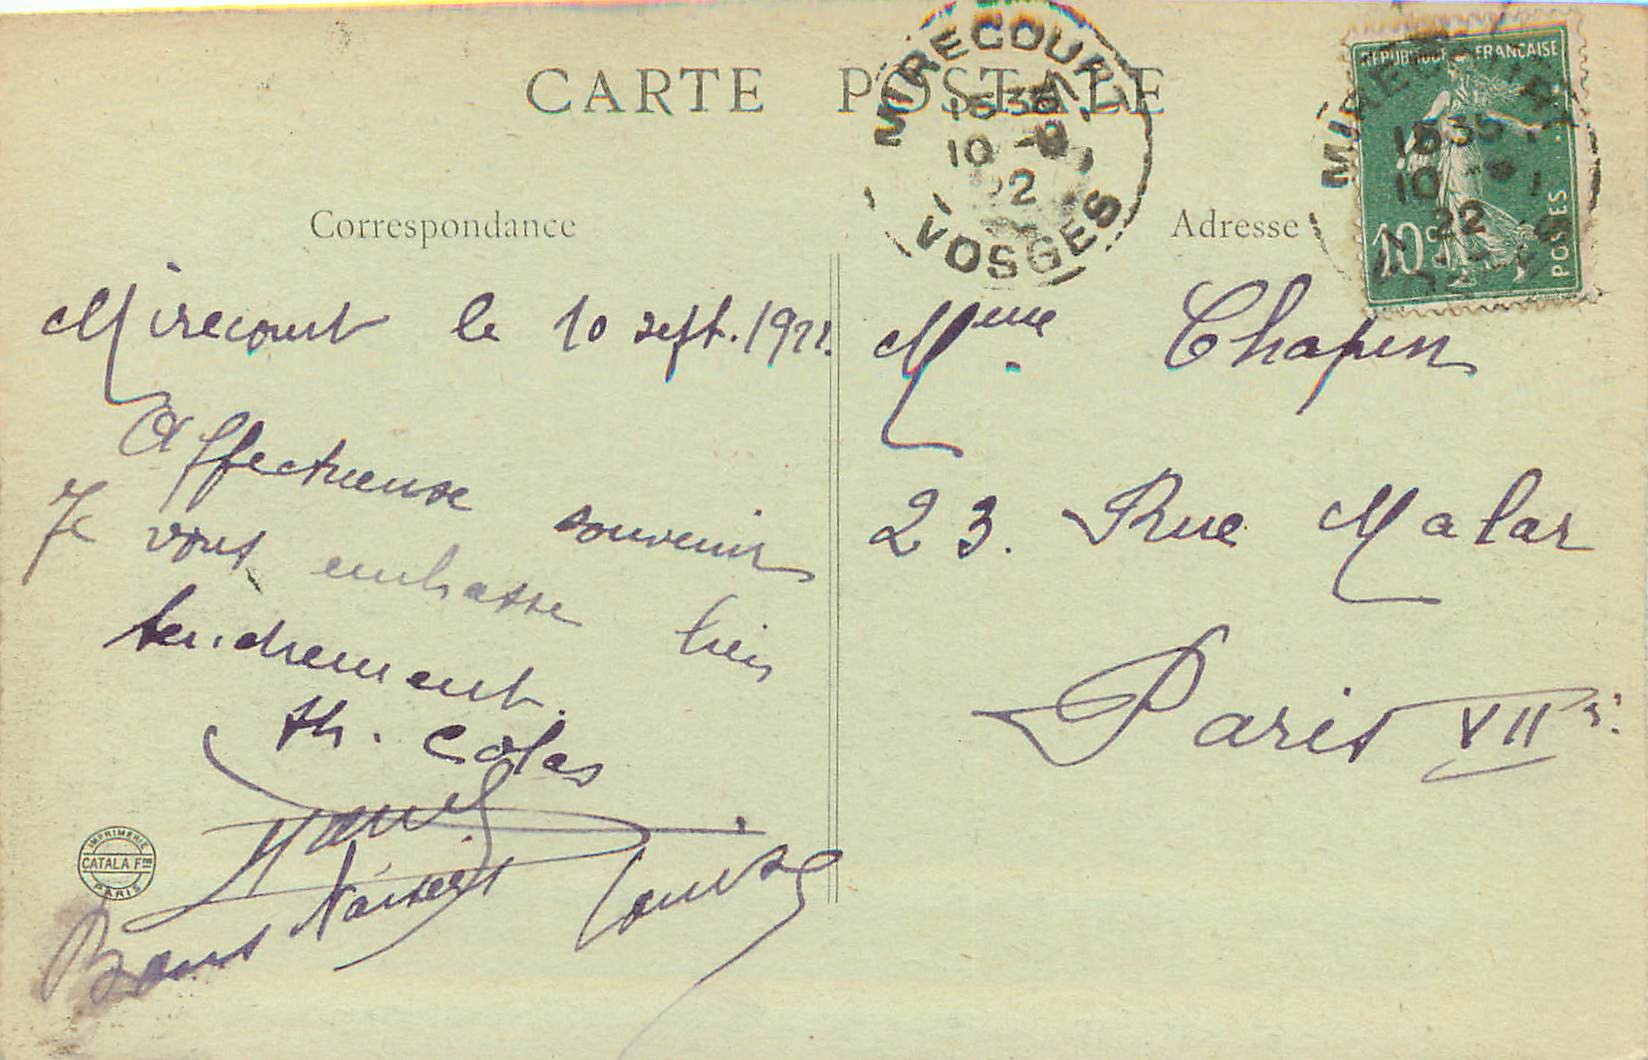 CARTE POSTALE
MIRECOURT
15 35
10 - 9
22
VOSGES
REPUBLIQUE FRANÇAISE
10c
POSTES
MIRECOURT
15 35
10 - 9
22
Correspondance
Adresse
Mirecourt le 10 sept. 1922.
Affectueuse souvenir
Je vous embrasse bien
tendrement.
th. Colas
Bons baisers Louise
IMPRIMERIE
CATALA Fres
PARIS
Mme Chapen
23. Rue Malar
Paris VII